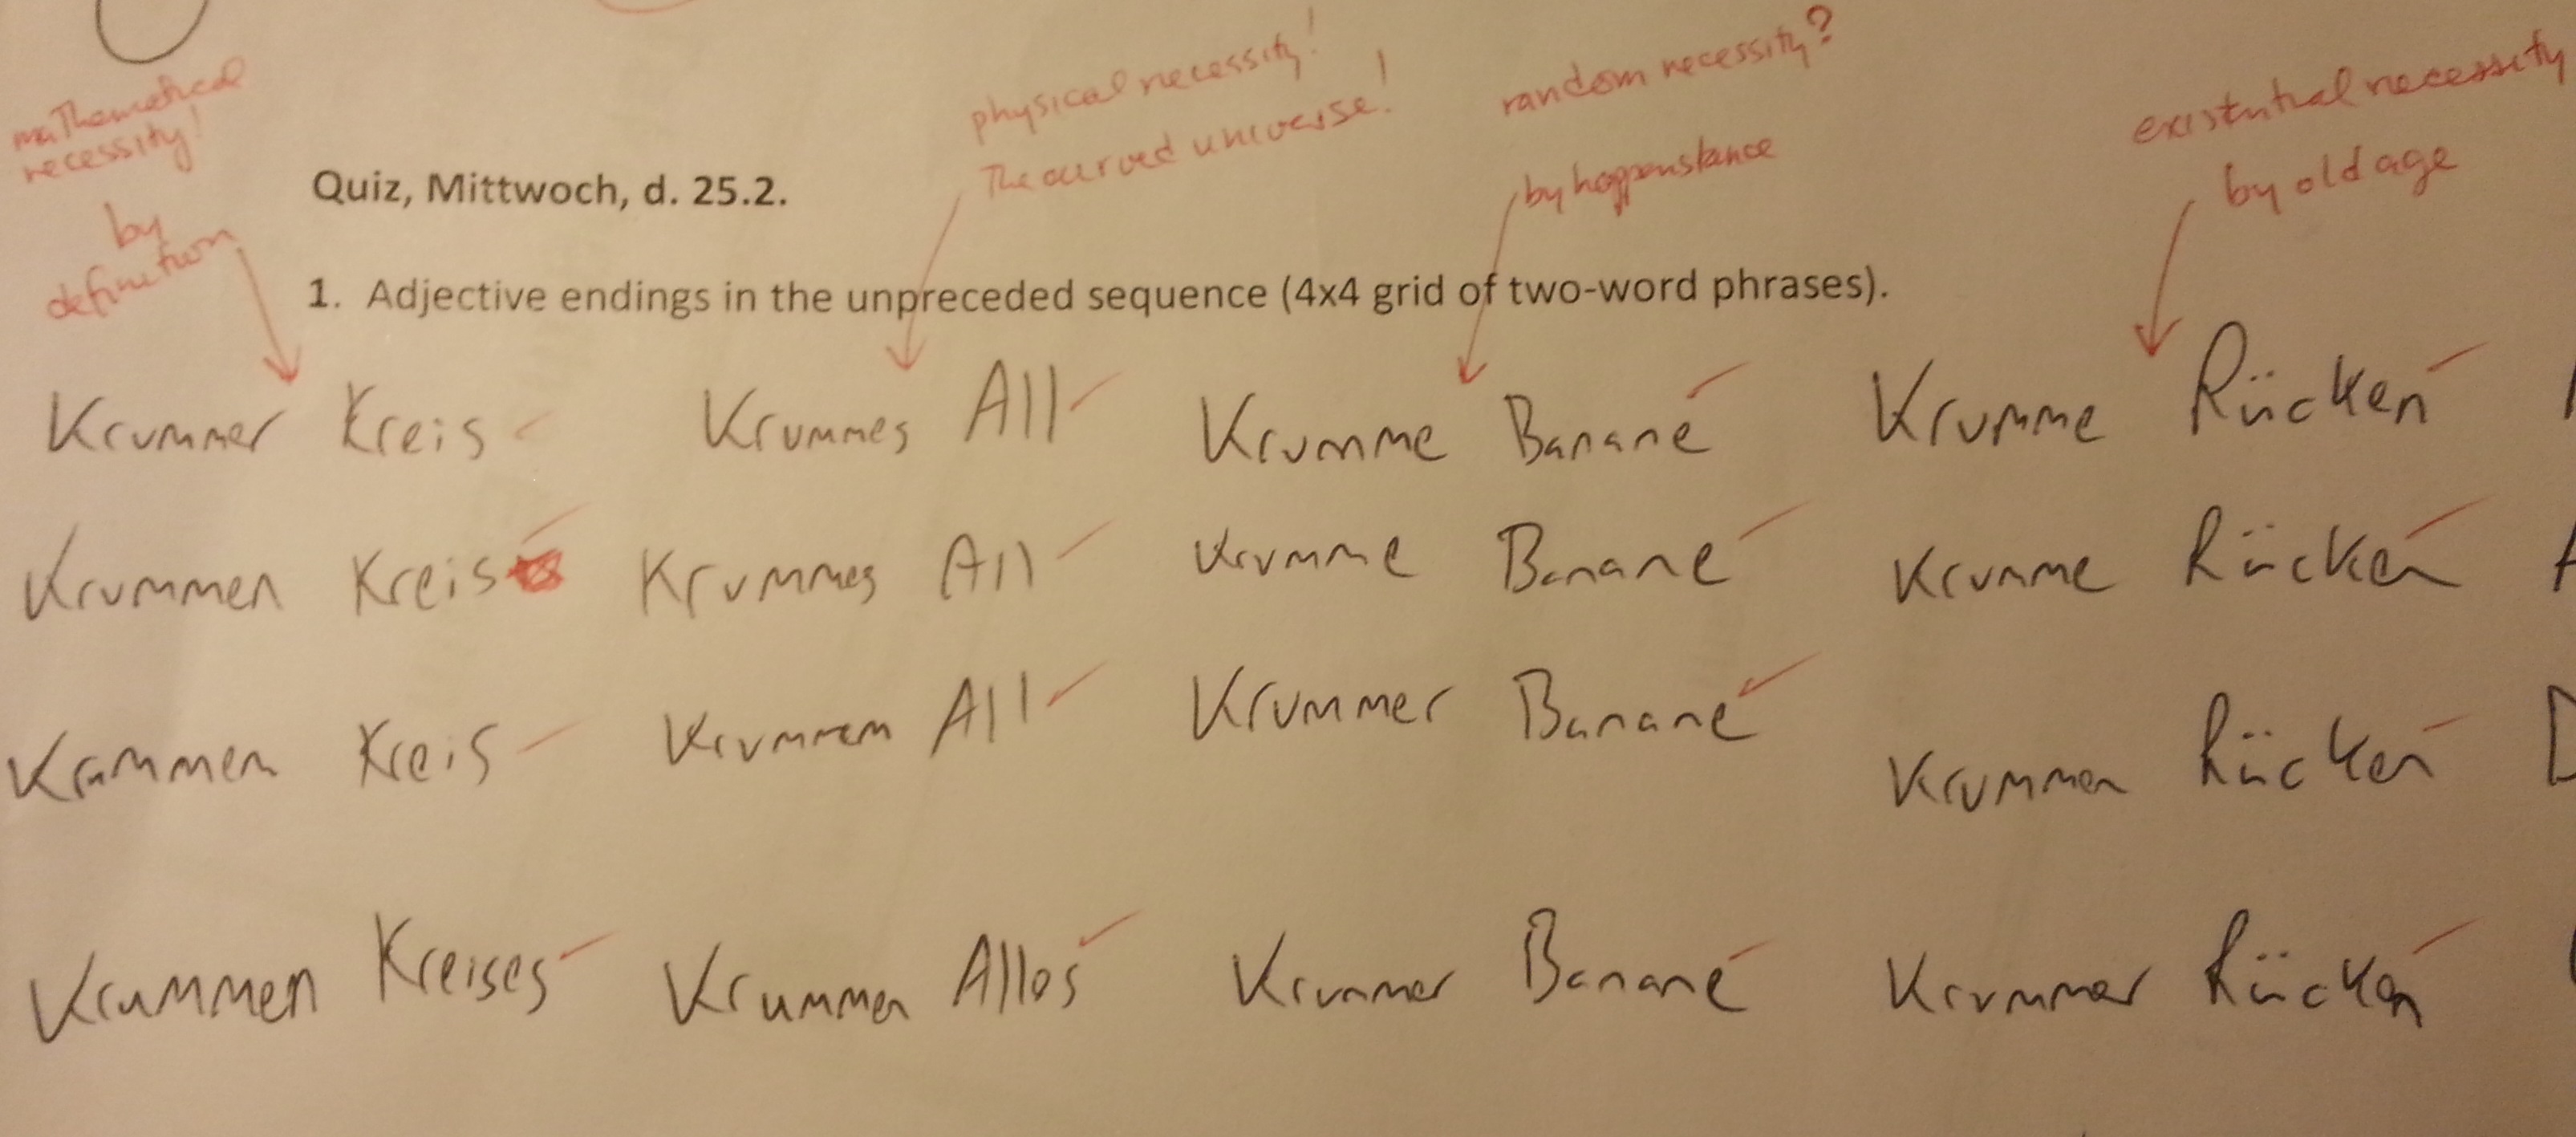 mathematical
necessity!
by
definition
physical necessity!
The curved universe!
random necessity?
by happenstance
existential necessity
by old age
Quiz, Mittwoch, d. 25.2.
1. Adjective endings in the unpreceded sequence (4x4 grid of two-word phrases).
Krummer Kreis Krummes All Krumme Banane Krumme Rücken
Krummen Kreis Krummes All Krumme Banane Krumme Rücken
Krummem Kreis Krummem All Krummer Banane Krummen Rücken D
Krummen Kreises Krummen Alles Krummer Banane Krummer Rücken